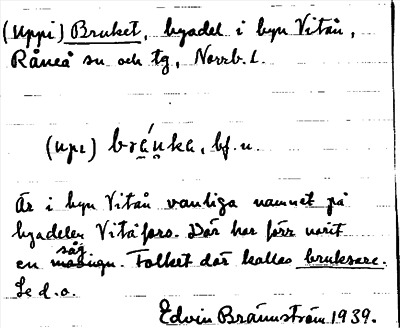 (uppi) Bruket, byadel i byn Vitån,
Råneå sn och tg, Norrb. l.
(upε) brǘnka, bf. n.
Är i byn Vitån vanliga namnet på
byadelen Vitåfors. Där har förr varit
en såg. Folket där kallas bruksare.
Se d. o.
Edvin Brännström 1939.